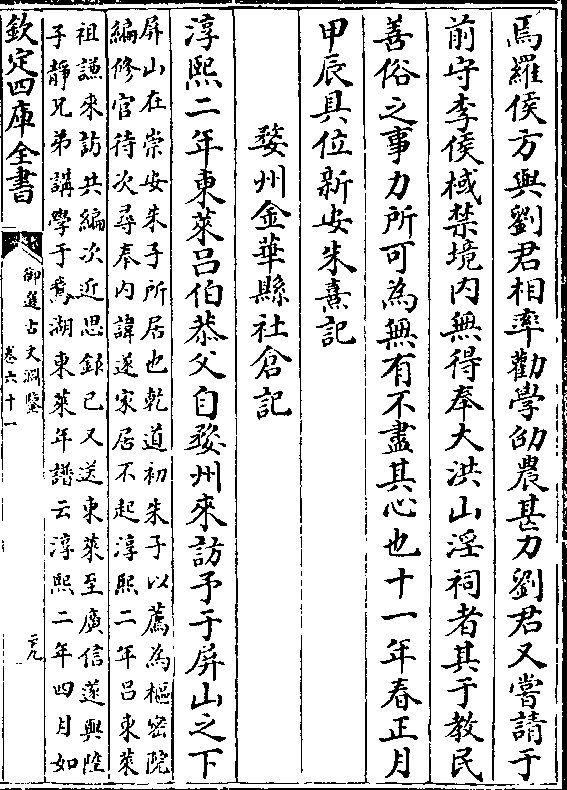 焉羅侯方與劉君相率勸學劭農甚力劉君又嘗請于
前守李侯棫禁境内無得奉大洪山淫祠者其于教民
善俗之事力所可為無有不盡其心也十一年春正月
甲辰具位新安朱熹記
婺州金華縣社倉記
淳熙二年東萊吕伯恭父自婺州來訪予于屏山之下
屏山在崇安朱子所居也乾道初朱子以薦為樞密院
編修官待次尋奉内諱遂家居不起淳熙二年吕東萊
祖謙來訪共編次近思錄已又送東萊至廣信遂與陸
子靜兄弟講學于鵞湖東萊年譜云淳熙二年四月如
欽定四庫全書
御選古文淵鑒
卷六十一
二十九